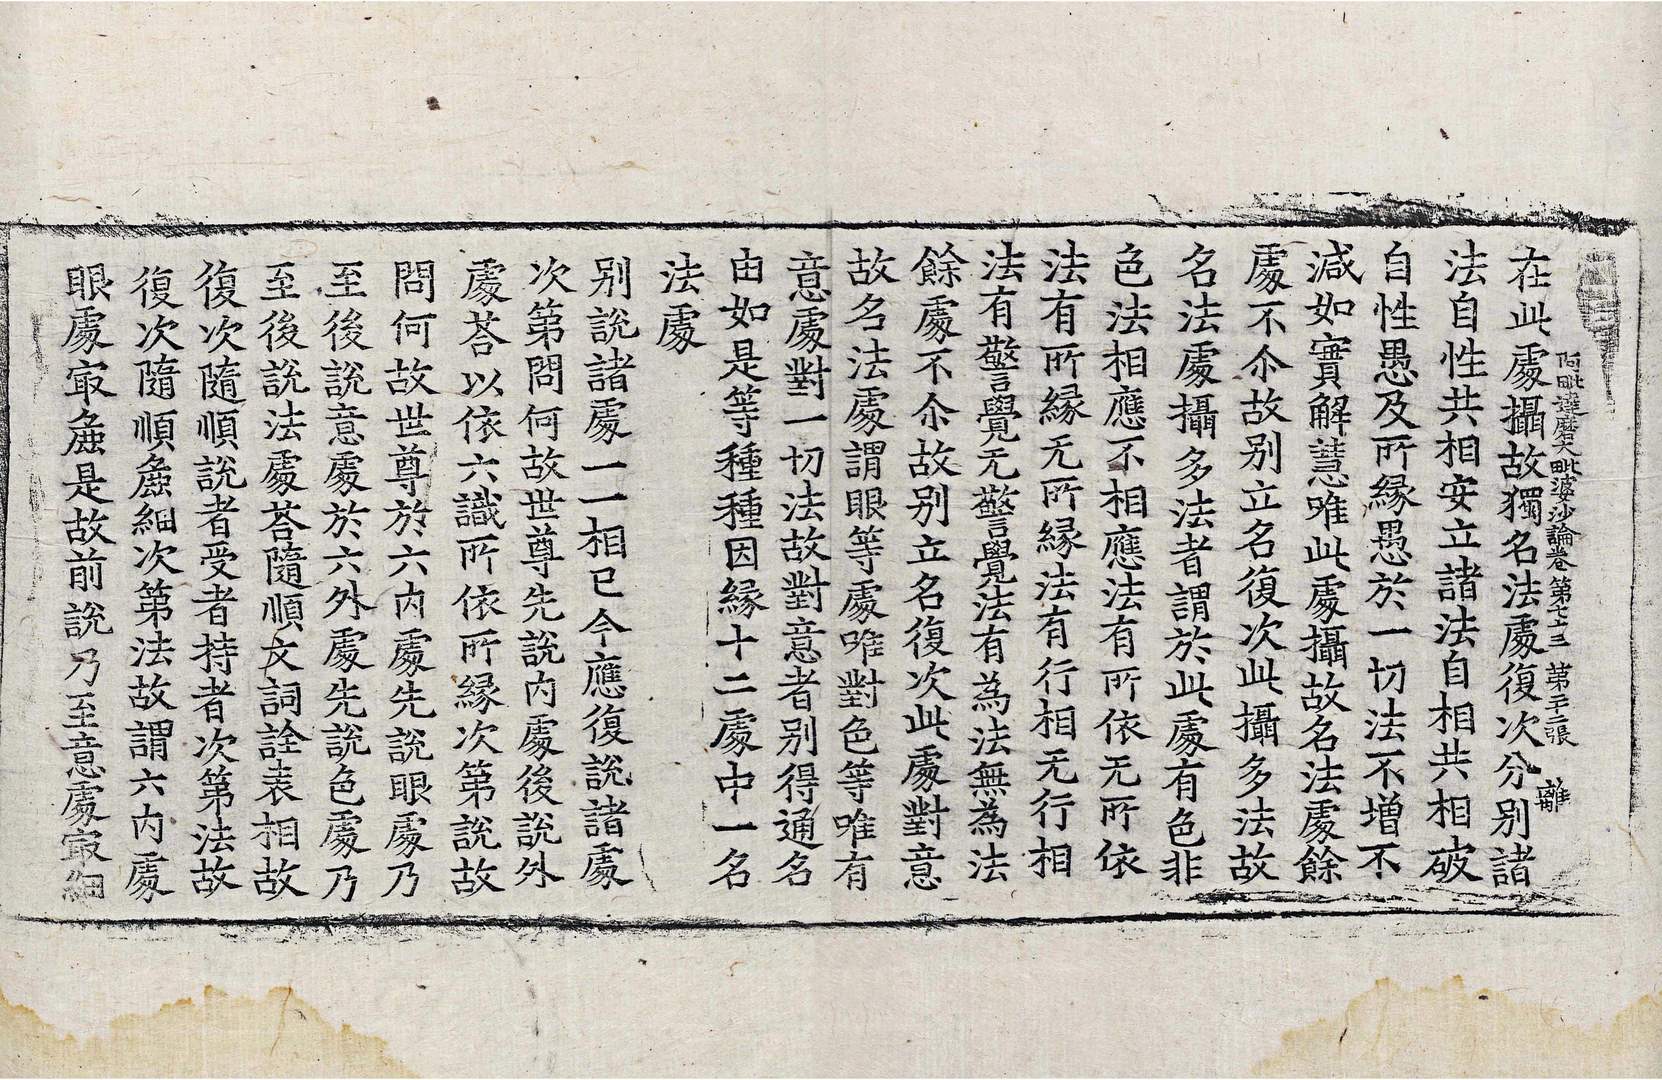 阿毗達磨大毗婆沙論卷第七十三 第二十二張 離
在此處攝故獨名法處復次分别諸
法自性共相安立諸法自相共相破
自性愚及所縁愚於一切法不增不
減如實解慧唯此處攝故名法處餘
處不尒故别立名復次此攝多法故
名法處攝多法者謂於此處有色非
色法相應不相應法有所依无所依
法有所縁无所縁法有行相无行相
法有警覺无警覺法有為法無為法
餘處不尒故别立名復次此處對意
故名法處謂眼等處唯對色等唯有
意處對一切法故對意者别得通名
由如是等種種因縁十二處中一名
法處
别說諸處一一相已今應復說諸處
次第問何故世尊先說内處後說外
處荅以依六識所依所縁次第說故
問何故世尊於六内處先說眼處乃
至後說意處於六外處先說色處乃
至後說法處荅隨順文詞詮表相故
復次隨順說者受者持者次第法故
復次隨順麁細次第法故謂六内處
眼處㝡麁是故前說乃至意處㝡細